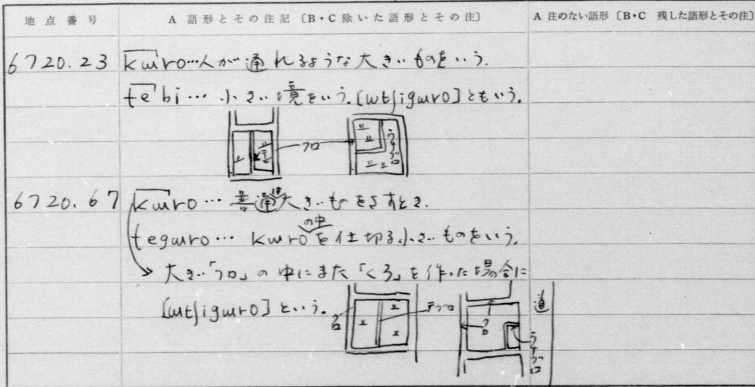 地点番号 A 語形とその注記〔B・C 除いた語形とその注〕 A 注のない語形〔B・C 残した語形とその注〕
6720.23 kɯro…人が通れるような大きいものをいう.
tebi… 小さい境をいう.[ɯtʃigɯro]ともいう.
クロ
6720.67 kɯro… 普通は大きいものをさすとき.
tegɯro… kɯroの中を仕切る小さいものをいう.
大きい「クロ」の中にまた「くろ」を作った場合に
[ɯtʃigɯro]という.
クロ テグロ クロ 道 ウチグロ